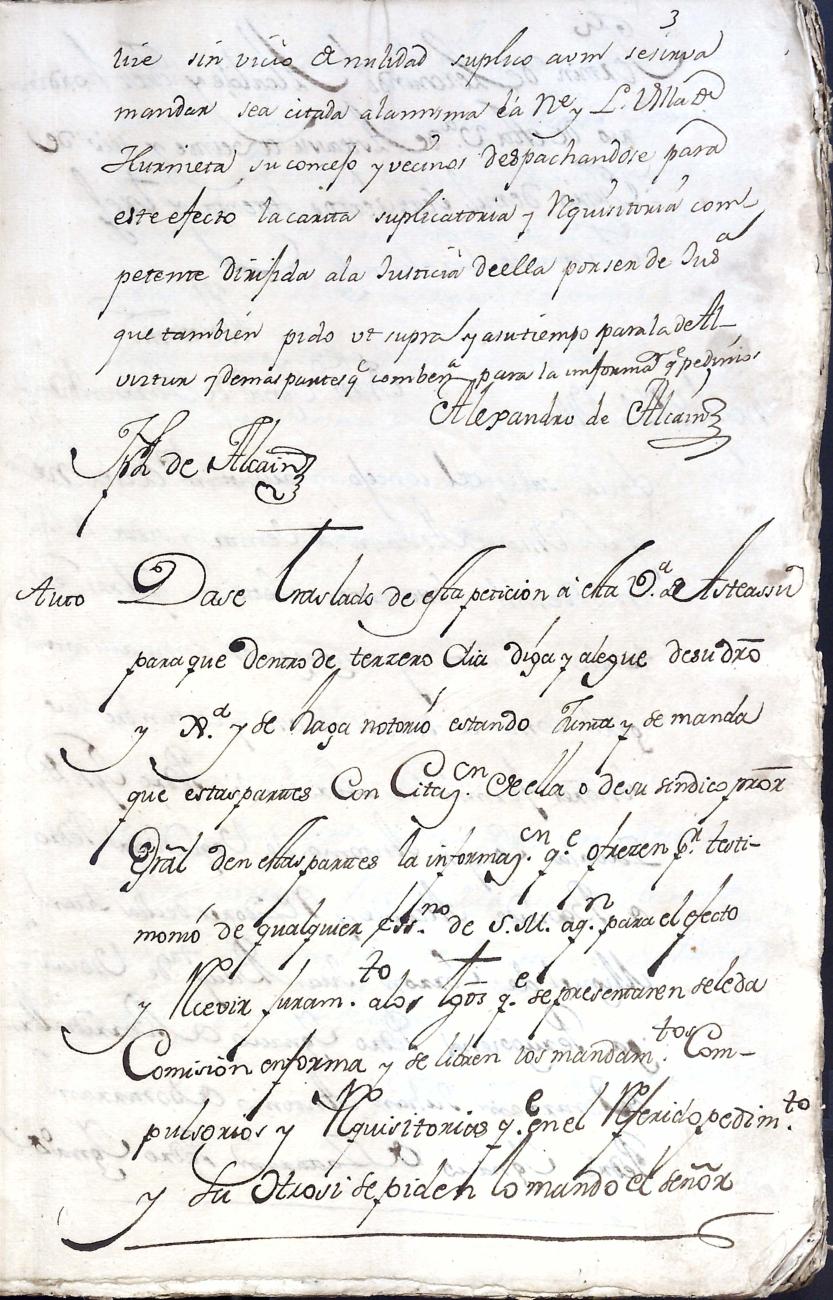 3
lue sin vicio de nulidad suplico avm se sirva
mandar sea citada alamisma la Ne. y L. Villa de
Hurnieta su concejo y vecinos despachandose para
este efecto la carta suplicatoria y Rquisitoria com-
petente dirijida ala Justicia de ella por sen de Jusa
que tambien pido vt supra y asu tiempo para la de Al-
viztur y demas partes q combena para la informaon qe pedimos
Alexandro de Alcain
Jph de Alcain
Auto Dase traslado de esta peticion a esta Va. de Asteassu
para que dentro de terzero dia diga y alegue de su dro
y Xa. y se haga notorio estando Junta y se manda
que estas partes Con Citaçn. de ella o de su sindico pror
Gral den estas partes la informaçn. qe. ofrezen pr. testi-
monio de qualquier essno. de S. M. aqn. para el efecto
y Rcevir juramto. alos tgos qe. se presentaren se le da
Comision en forma y se libren los mandamtos. Com-
pulsorios y Rquisitorias qe. en el Rferido pedimto.
y su Otrosi se piden lo mando el señor